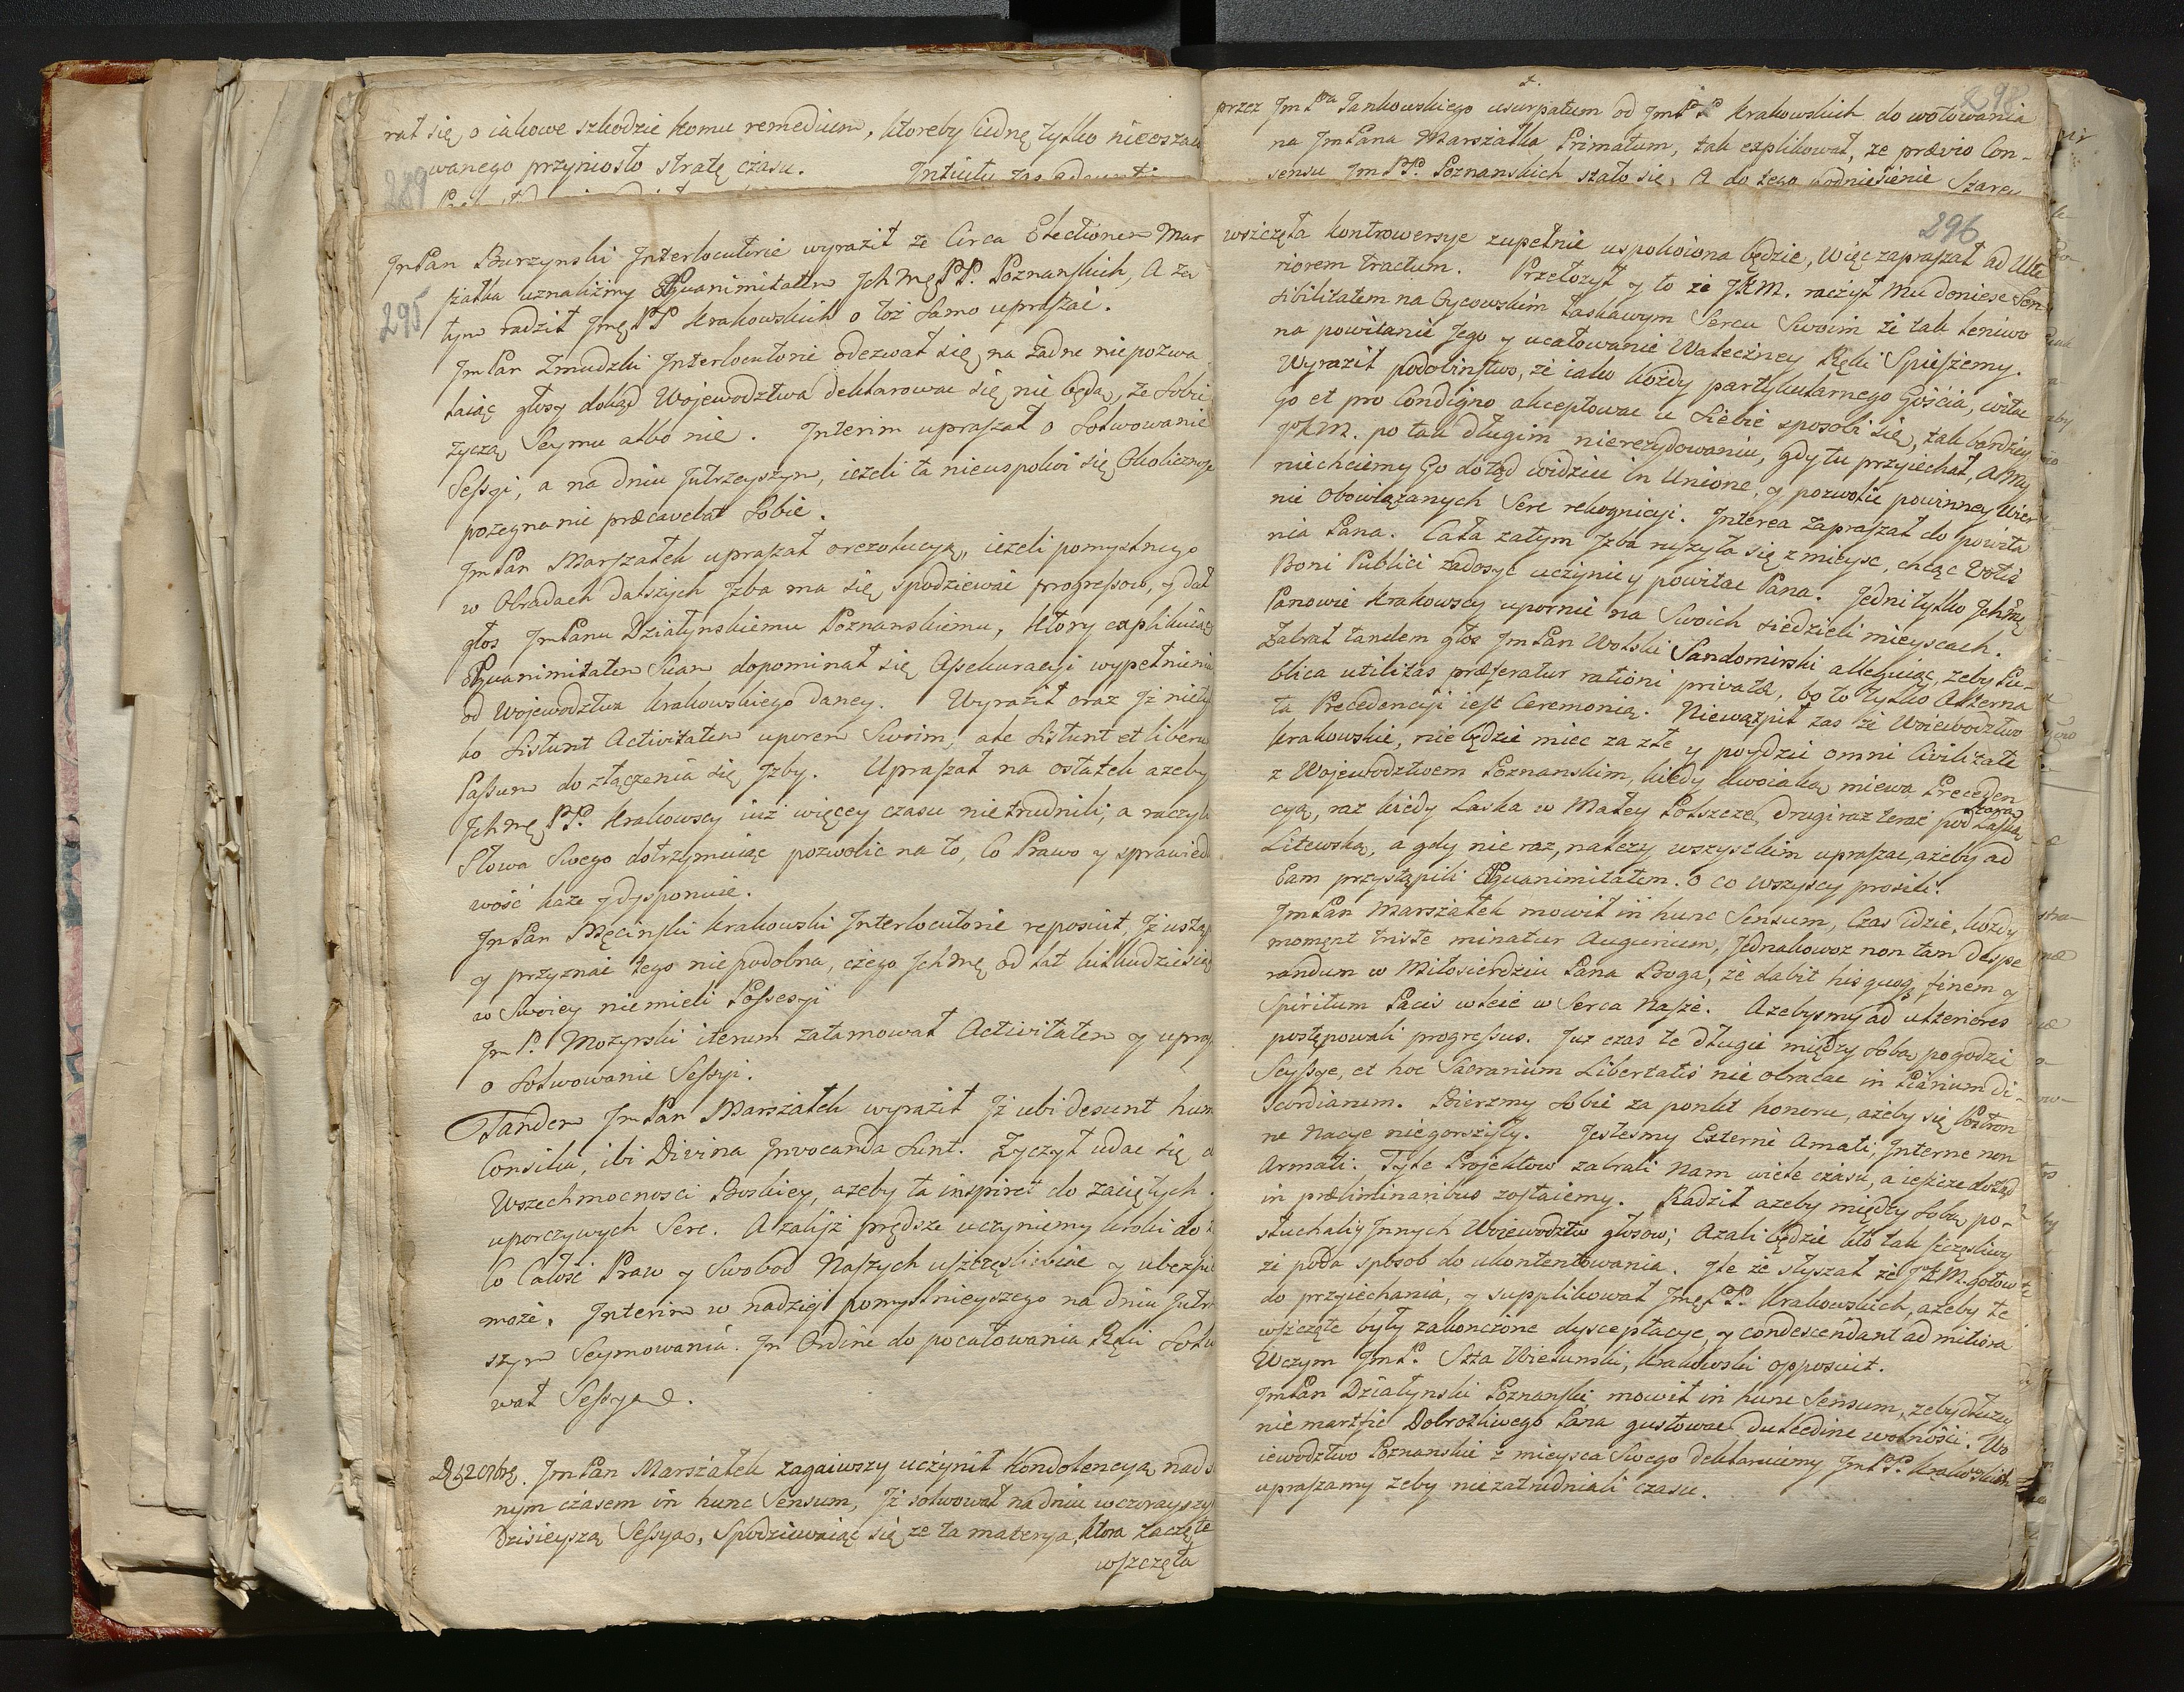 rat się o iakowe szkodzie komu remedium, ktoreby iedną tylko nieoszaco
wanego przyniosło stratę czasu. Intuitu zas
289
295
JmPan Burzynski Interlocutorie wyraził ze Circa Electionem Mar
szałka uznalizmy Æquanimitatem Jchmę PP. Poznanskich, A za
tym radził Jmę PP Krakowskich o toż samo upraszać.
JmPan Zmudzki Interlocutorie odezwał się, na żadne niepozwa
laiąc głosy dokąd Wojewodztwa deklarowac się nie będą, ze sobie
zyczą Seymu albo nie. Interim upraszał o Solwowanie
Sessyi, a na dniu Jutrzeyszym, iezeli ta nieuspokoi się Okolicznosc
pozegnanie præcavebat sobie.
JmPan Marszałek upraszał orezolucyą, iezeli pomyslnego
w Obradach dalszych Jzba ma się spodziewać progressow, y dał
głos JmPanu Działynskiemu Poznanskiemu, Ktory explikuiąc
Æquanimitatem Suam dopominał się Assekuracyi wypełnienia
od Wojewodztwa Krakowskiego daney. Wyraził oraz Jż nietyl
ko Sistunt Activitatem uporem Swoim, ale Sistunt et liberum
Passum do złączenia się Jzby. Upraszał na ostatek azeby
Jchmę PP. Krakowscy iuż więcey czasu nietrudnili, a raczyli
Słowa Swego dotrzymuiąc pozwolic na to, Co Prawo y sprawiedli
wość każe y dysponuie.
JmPan Męcinski Krakowski Interlocutorie reposuit, Jż ustąp
y przyznać tego niepodobna, czego Jchmę od lat kilkudziesiąt
w Swoiey niemieli Possessyi
JmP. Mozyrski iterum zatamował Activitatem y upras
o Solwowanie Sessyi.
Tandem JmPan Marszałek wyraził Jż ubi desunt hum
Consilia, ibi Divina Jnvocanda sunt. Zyczył udac się d
Wszechmocnosci Boskiey, azeby ta inspiret do zaciętych
uporczywych Serc. Azaliż prędsze uczyniemy kroki do
Co Całość Praw y Swobod Naszych uszczęsliwiac y ubezpie
moze. Interim w nadzieji pomyslnieyszego na dniu Jutrz
szym Seymowania. Jn Ordine do pocałowania Ręki solwo
wał Sessyą.
D. 12 8bris. JmPan Marszałek zagaiwszy uczynił Kondolencyą nad s
nym czasem in hunc Sensum, Jż solwował na dniu wczorayszy
Dzisieyszą Sessyą, Spodziewaiąc się ze ta materya, ktora zaczęte
wszczęta
298
przez JmPna Jankowskiego usurpatum od JmPP Krakowskich do wotowania
na JmPana Marszałka Primatum, tak explikował, ze prævio Con-
sensu JmPP. Poznanskich stało się, A do tego podniesienie
296
wszczęta kontrowersye zupełnie uspokoiona będzie, Więc zapraszał ad Ulte
riorem tractum. Przełozył y to ze JKM. raczył Mu doniesc Sen-
sibilitatem na Oycowskim łaskawym Sercu Swoim że tak leniwo
na powitanie Jego y ucałowanie Waleczney Ręki Spieszemy.
Wyraził podobinstwo, że iako każdy partykularnego Gościa, witac
Go et pro Condigno akceptowac u Siebie sposobi się, tak bardziey
JKM. po tak długim nierezydowaniu, gdy tu przyiechał, A my
niechciemy Go dotąd widziec in Unione, y pozwolic powinney Wier
nie Obowiązanych Serc rekognicyi. Interea Zapraszał do powita
nia Pana. Cała zatym Jzba ruszyła się z mieysc, chcąc Votis
Boni Publici zadosyc uczynic y powitac Pana. Jedni tylko Jchmę
Panowie Krakowscy upornie na Swoich siedzieli mieyscach.
Zabrał tandem głos JmPan Wolski Sandomirski alleguiąc, zeby Pu-
blica utilitas præferatur rationi privatæ, bo to tylko Alterna
ta Precedencyi iest Ceremonią. Niewątpił zas że Woiewodztwo
Krakowskie, nie będzie miec za złe y poydzie omni Civilitate
z Wojewodztwem Poznanskim, kiedy dwoiaką miewa Preceden
cyą, raz kiedy Laska w Małey Polszcze, drugi raz teraz pod Laską
Litewską, a gdy nie raz, nalezy wszystkim upraszac, azeby ad
Eam przystąpili Æquanimitatem. o co wszyscy prosili.
JmPan Marszałek mowił in hunc Sensum, Czas idzie, kozdy
momęnt triste minatur Augurium, Jednakowoz non tam despe
randum w Miłosierdziu Pana Boga, że dabit his quoq finem y
Spiritum Pacis wleie w Serca Nasze. Azebysmy ad ulteriores
postępowali progressus. Juz czas te długie między sobą pogodzi
Scyssye, et hoc Sacrarium Libertatis nie obracac in Pianum di-
scordiarum. Bierzmy sobie za ponkt honoru, azeby się Postron
ne Nacye niegorszyły. Jestesmy Externe Amati, Interne non
Armati. Tyle Projektow zabrali Nam wiele czasu, a ieszcze dotąd
in præliminaribus zostaiemy. Radził azeby między sobą po-
słuchali Jnnych Woiewodztw głosow; Azali będzie kto tak szczęsliwy
ze poda sposob do ukontentowania. Jle że słyszał że JKM. gotow
do przyiechania, y supplikował Jmę PP. Krakowskich, azeby te
wszczęte były zakonczone dysceptacye, y condescendant ad mitiora
Wczym JmP. Stta Wielunski, Krakowski opposuit.
JmPan Działynski Poznanski mowił in hunc Sensum, zeby dłuzey
nie martfic Dobrotliwego Pana gustowac dulcedine wolności. Wo
iewodztwo Poznanskie z mieysca Swego deklaruiemy JmPP. Krakowskich
upraszamy zeby niezatrudniali czasu.